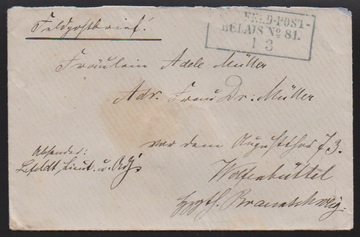 Feldpostbrief.
FELD-POST-
RELAIS No 81.
1 3
Fräulein Adele Müller
Adr. Frau Dr. Müller
vor dem Augustthor
Wolfenbüttel
Braunschweig
Absender:
Lieut. u.